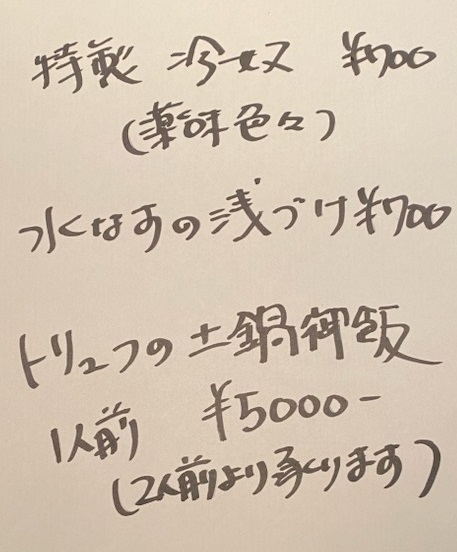 特製 冷奴 ¥700
(薬味色々)
水なすの浅づけ¥700
トリュフの土鍋御飯
1人前 ¥5000-
(2人前より承ります)